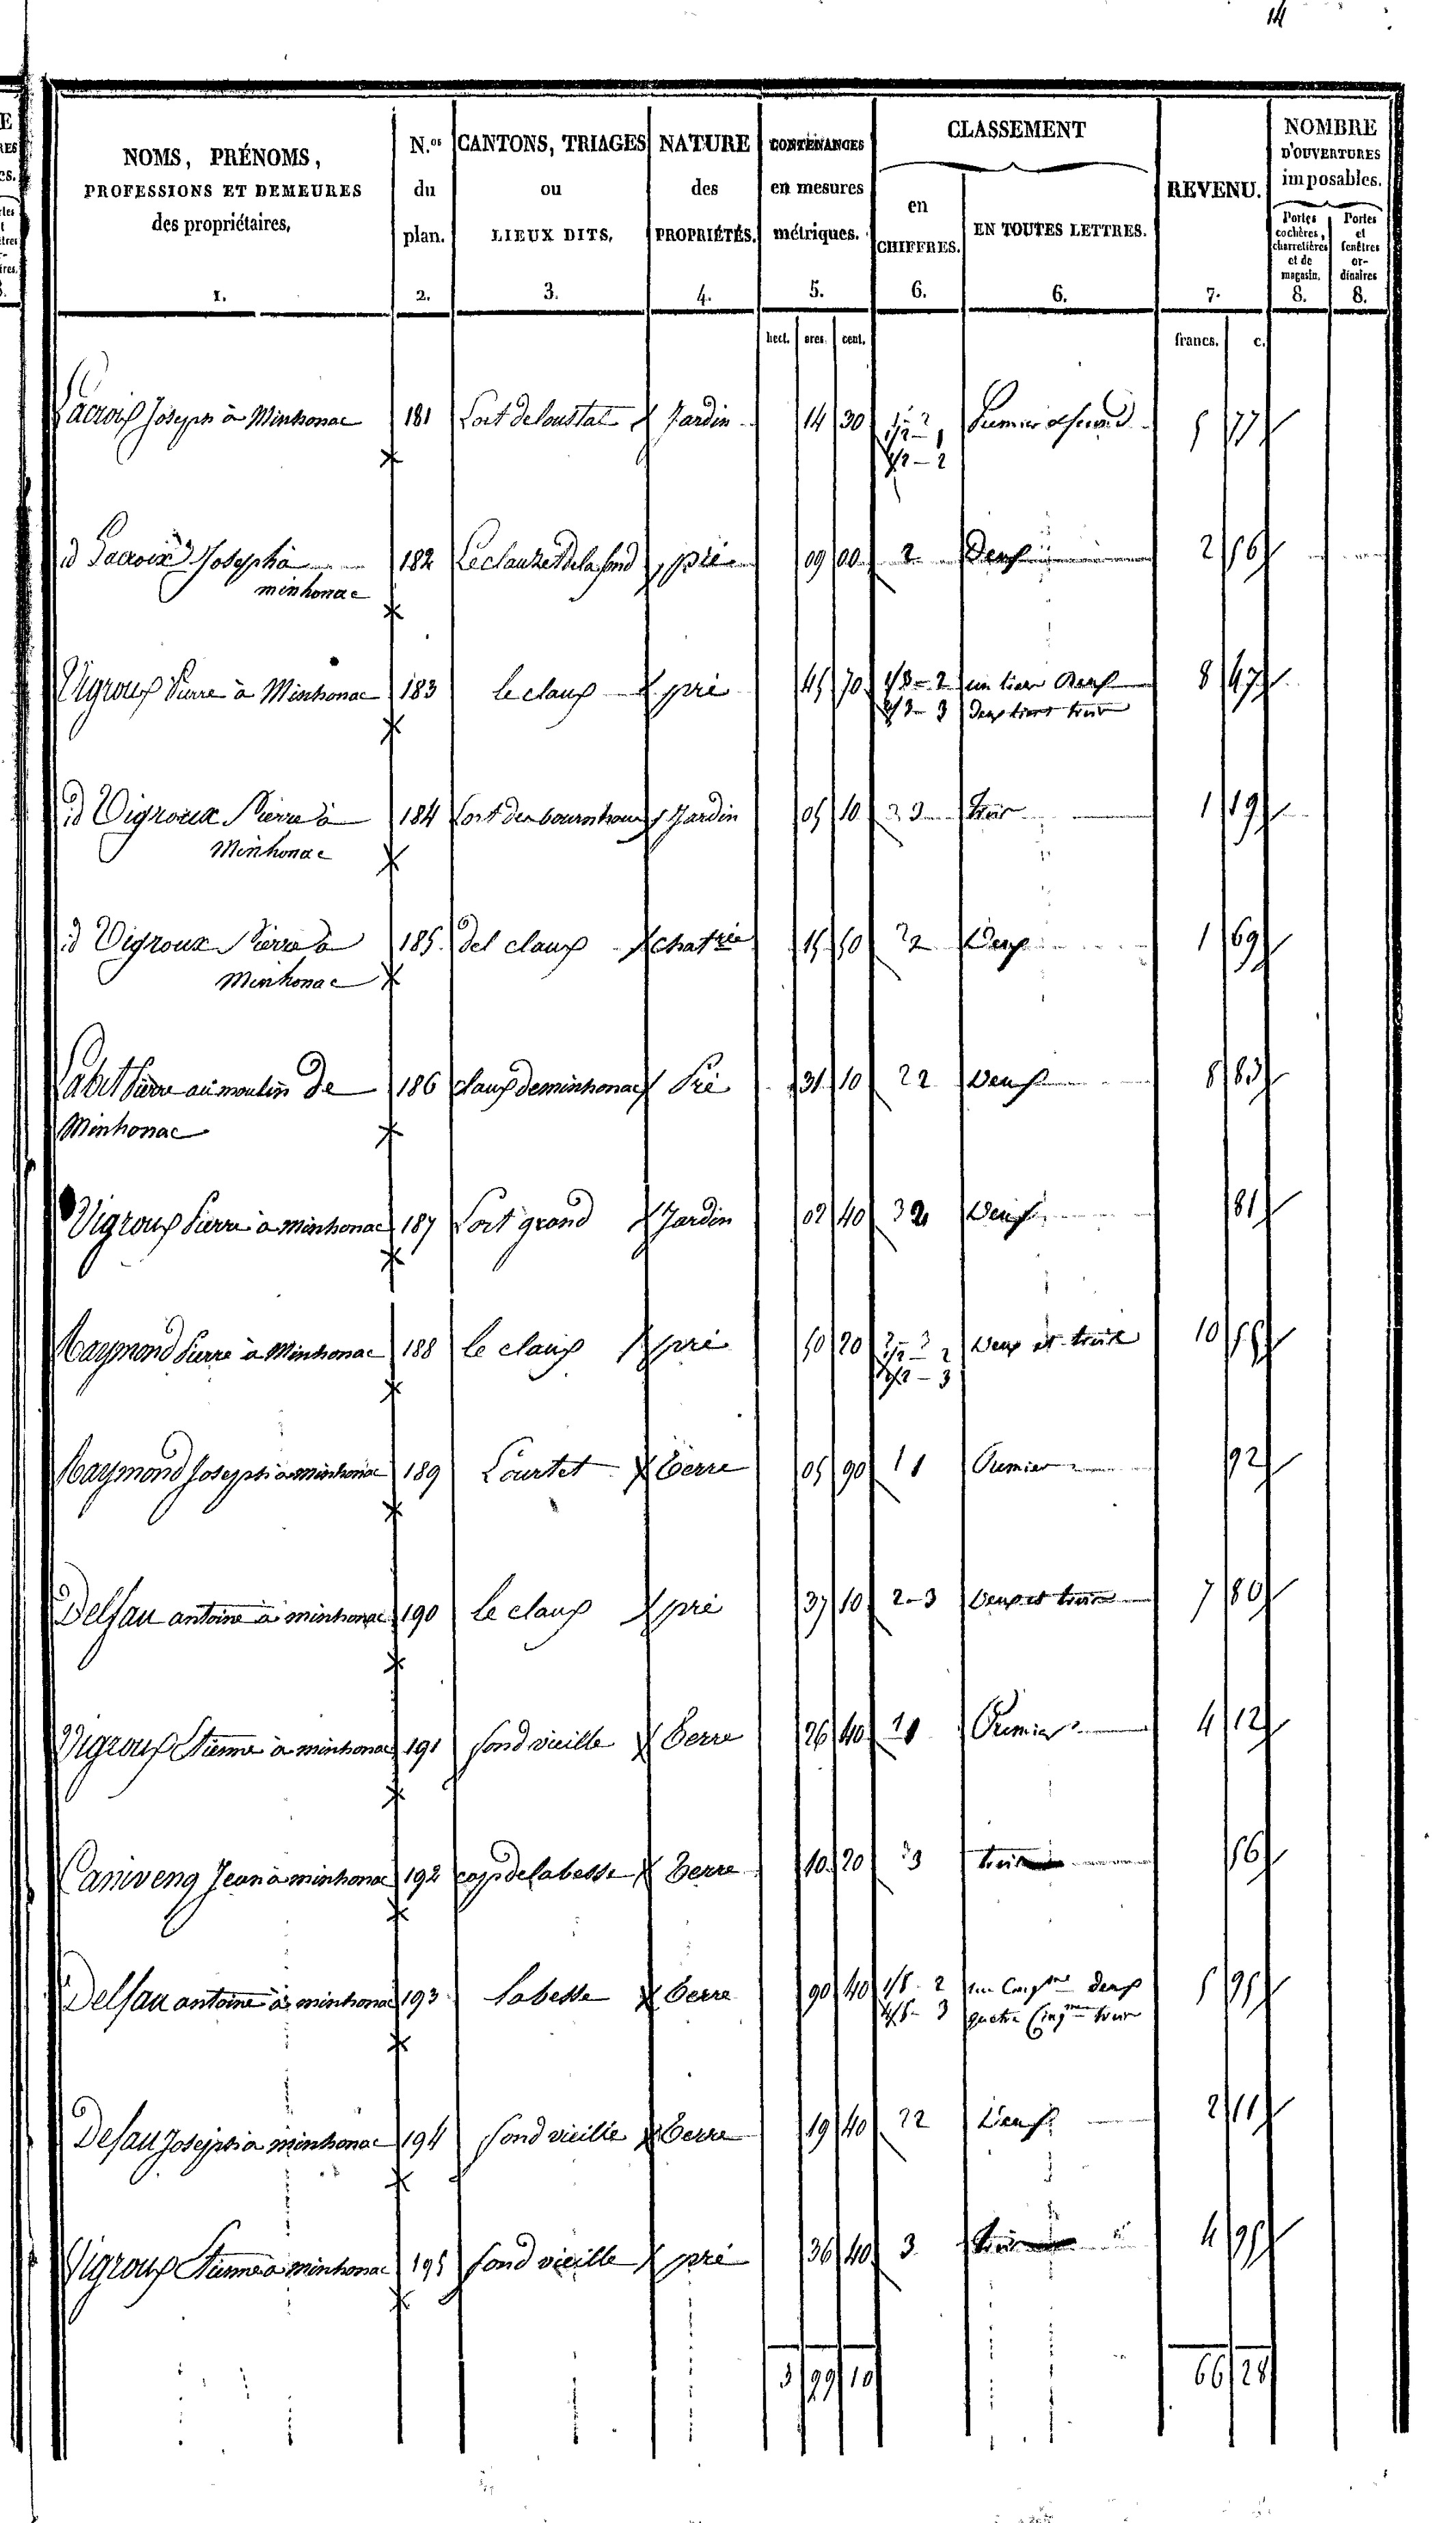 14
NOMS, PRÉNOMS,
PROFESSIONS ET DEMEURES
des propriétaires,
1.
N.os
du
plan.
2.
CANTONS, TRIAGES
ou
LIEUX DITS,
3.
NATURE
des
PROPRIÉTÉS.
4.
CONTENANCES
en mesures
métriques.
5.
CLASSEMENT
en
CHIFFRES.
6.
EN TOUTES LETTRES.
6.
REVENU.
7.
NOMBRE
D'OUVERTURES
imposables.
Portes
cochères,
charretières
et de
magasin.
8.
Portes
et
fenêtres
or-
dinaires
8.
hect. ares. cent. francs. c.
Lacroix Joseph à Minhonac 181 Lort deloustal Jardin 14 30 1/2 - 1 Premier et second 5 77
1/2 - 2
id Lacroix Joseph à 182 Le clauzet de la fond pré 09 00 2 Deux 2 56
minhonac
Vigroux Pierre à Minhonac 183 le claux pré 45 70 1/3 - 2 un tiers Deux 8 47
2/3 - 3 Deux tiers trois
id Vigroux Pierre à 184 Lort den Jardin 05 10 3 trois 1 19
Minhonac
id Vigroux Pierre à 185 del claux chat.rée 15 50 2 Deux 1 69
Minhonac
Labit Pierre au moulin de 186 claux de minhonac Pré 31 10 2 Deux 8 83
Minhonac
Vigroux Pierre à minhonac 187 Lort grand Jardin 02 40 2 Deux 81
Raymond Pierre à Minhonac 188 le claux pré 50 20 1/2 - 2 Deux et trois 10 55
1/2 - 3
Raymond Joseph à minhonac 189 Lourtet terre 05 90 1 Premier 92
Delfau antoine à minhonac 190 le claux pré 37 10 2-3 Deux et trois 7 80
Vigroux Etienne à minhonac 191 fond vieille terre 26 40 1 Premier 4 12
Caniveng Jean à minhonac 192 cap de labesse terre 10 20 3 trois 56
Delfau antoine à minhonac 193 labesse terre 90 40 1/5 - 2 un Cinq.me deux 5 95
4/5 - 3 quatre Cinq.me trois
Delfau Joseph à minhonac 194 fond vieille terre 19 40 2 Deux 2 11
Vigroux Etienne à minhonac 195 fond vieille pré 36 40 3 trois 4 95
3 99 10 66 28